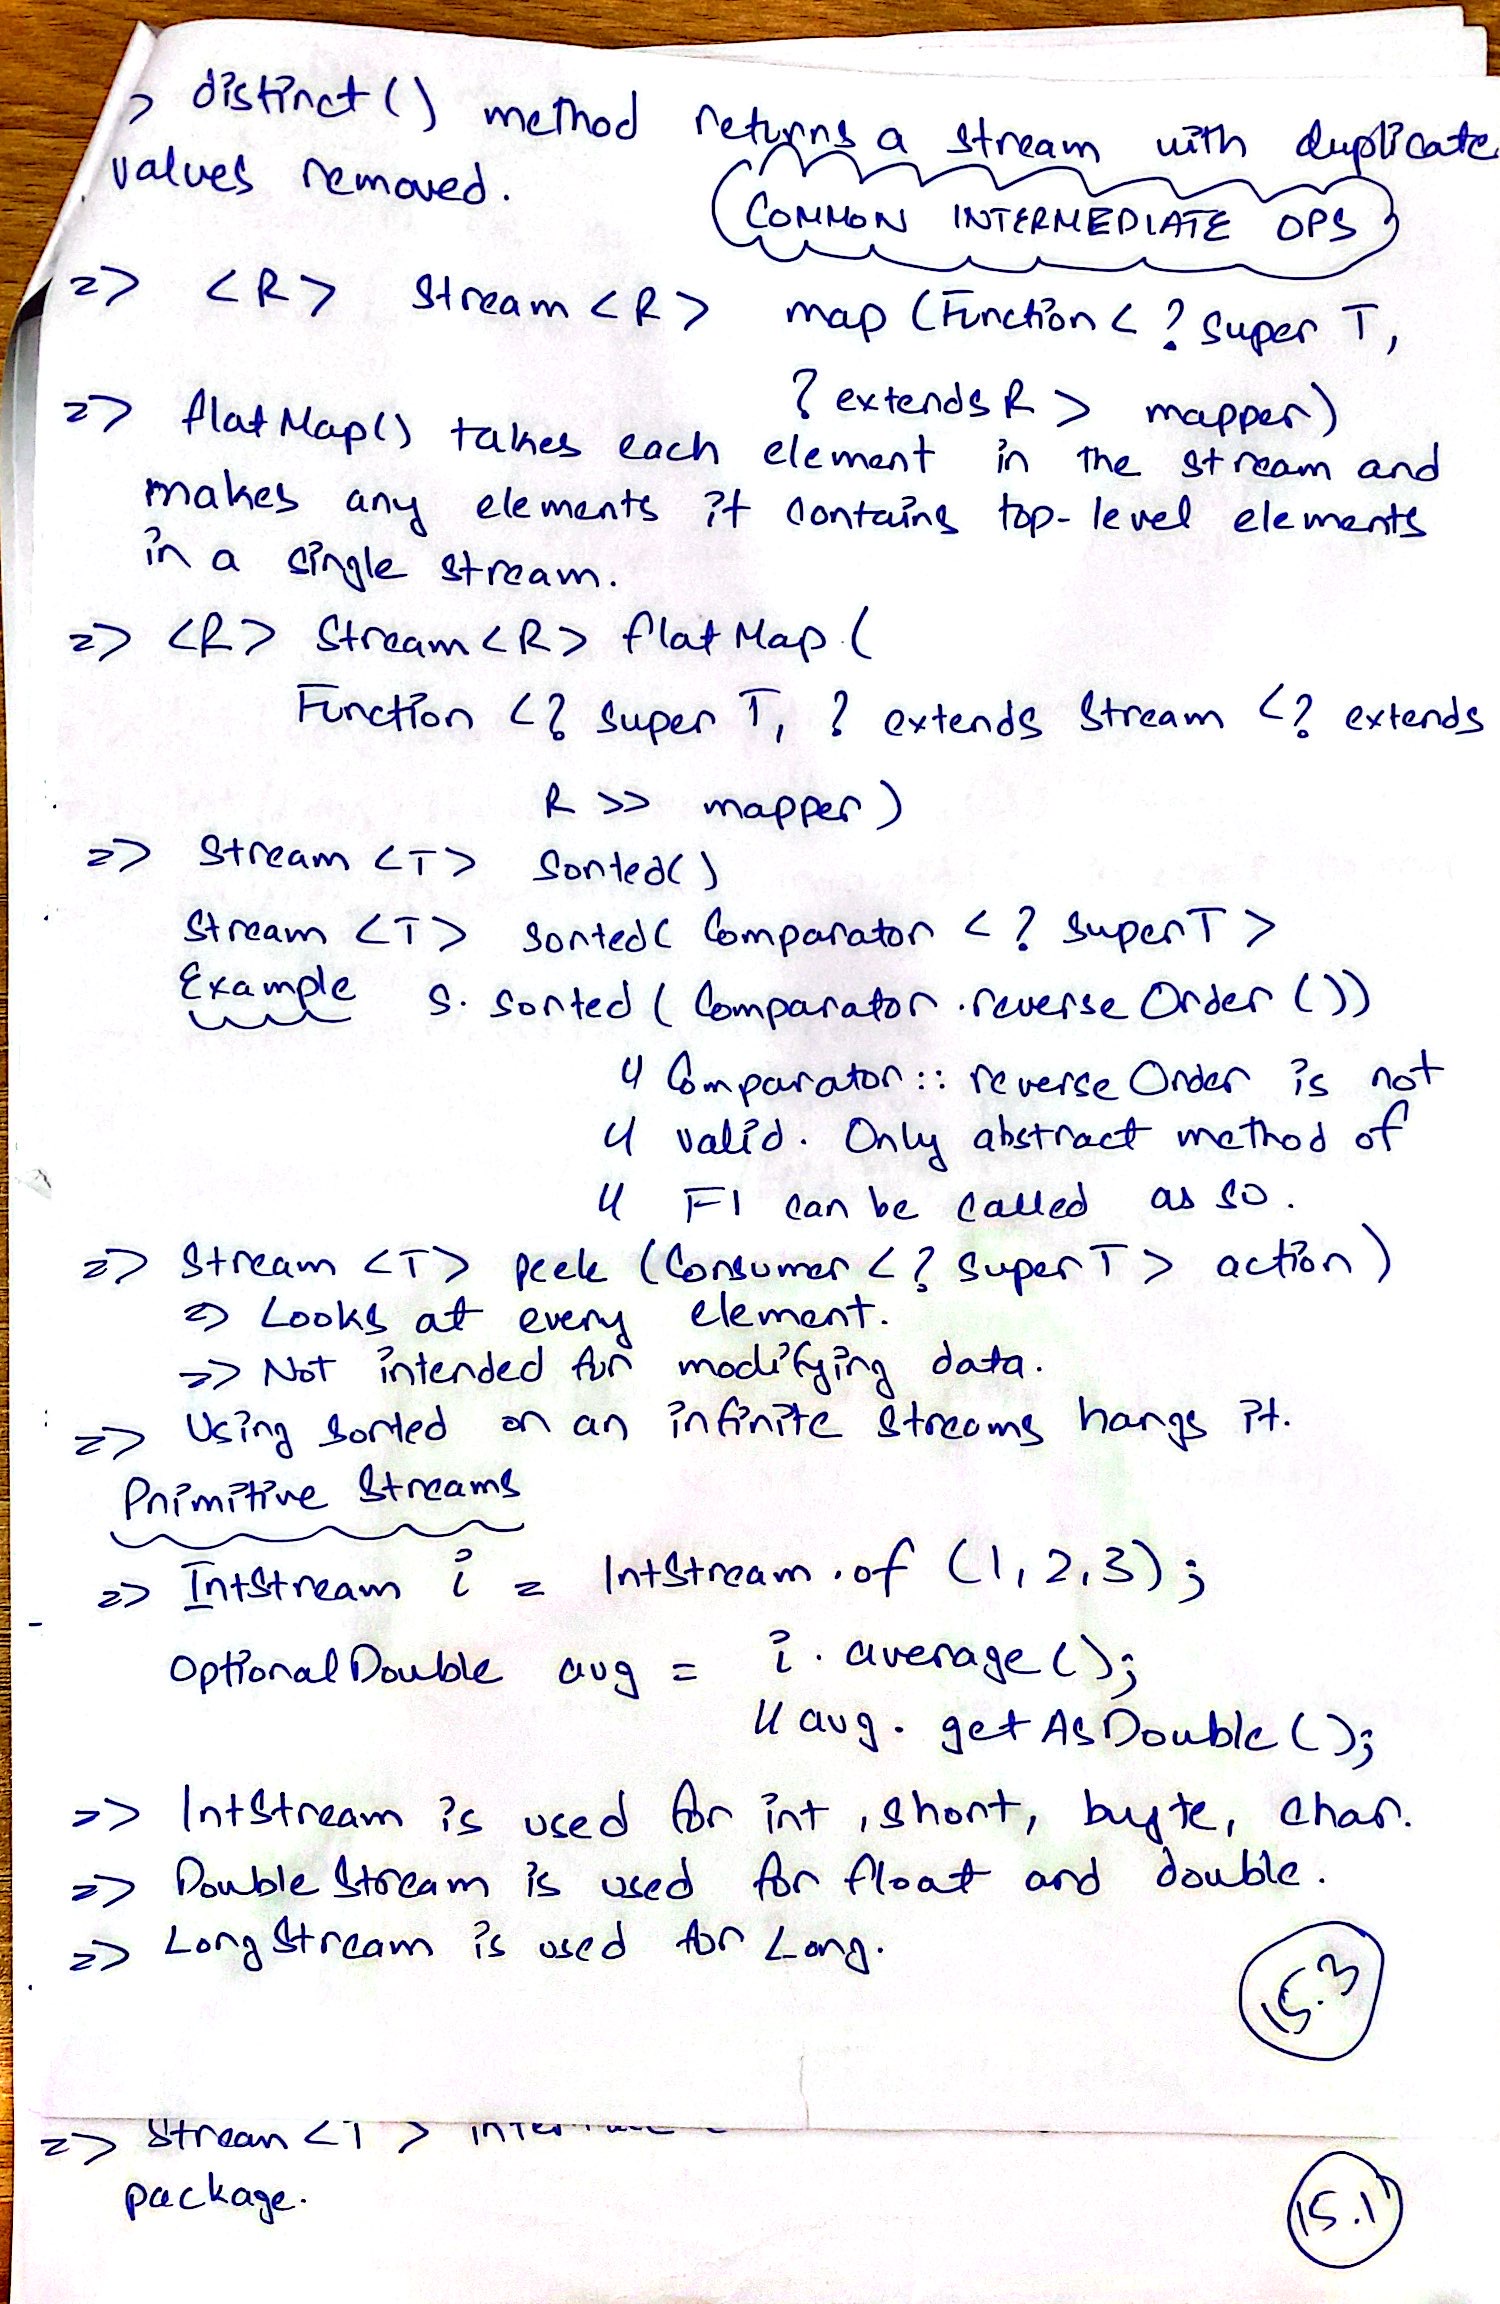 > distinct() method returns a stream with duplicate
values removed.
COMMON INTERMEDIATE OPS
=> <R> Stream<R> map (Function< ? super T,
? extends R > mapper)
=> flatMap() takes each element in the stream and
makes any elements it contains top-level elements
in a single stream.
=> <R> Stream<R> flatMap (
Function <? super T, ? extends Stream <? extends
R >> mapper)
=> Stream <T> Sorted()
Stream <T> sorted( Comparator < ? super T >
Example S. sorted ( Comparator .reverse Order ())
// Comparator:: reverse Order is not
// valid. Only abstract method of
// FI can be called as so.
=> Stream <T> peek (Consumer <? super T > action)
=> Looks at every element.
=> Not intended for modifying data.
=> Using sorted on an infinite streams hangs it.
Primitive Streams
=> IntStream i = IntStream.of (1,2,3);
OptionalDouble avg = i. average();
// avg. getAsDouble();
=> IntStream is used for int, short, byte, char.
=> DoubleStream is used for float and double.
=> LongStream is used for Long.
15.3
=> Stream <T>
package.
15.1